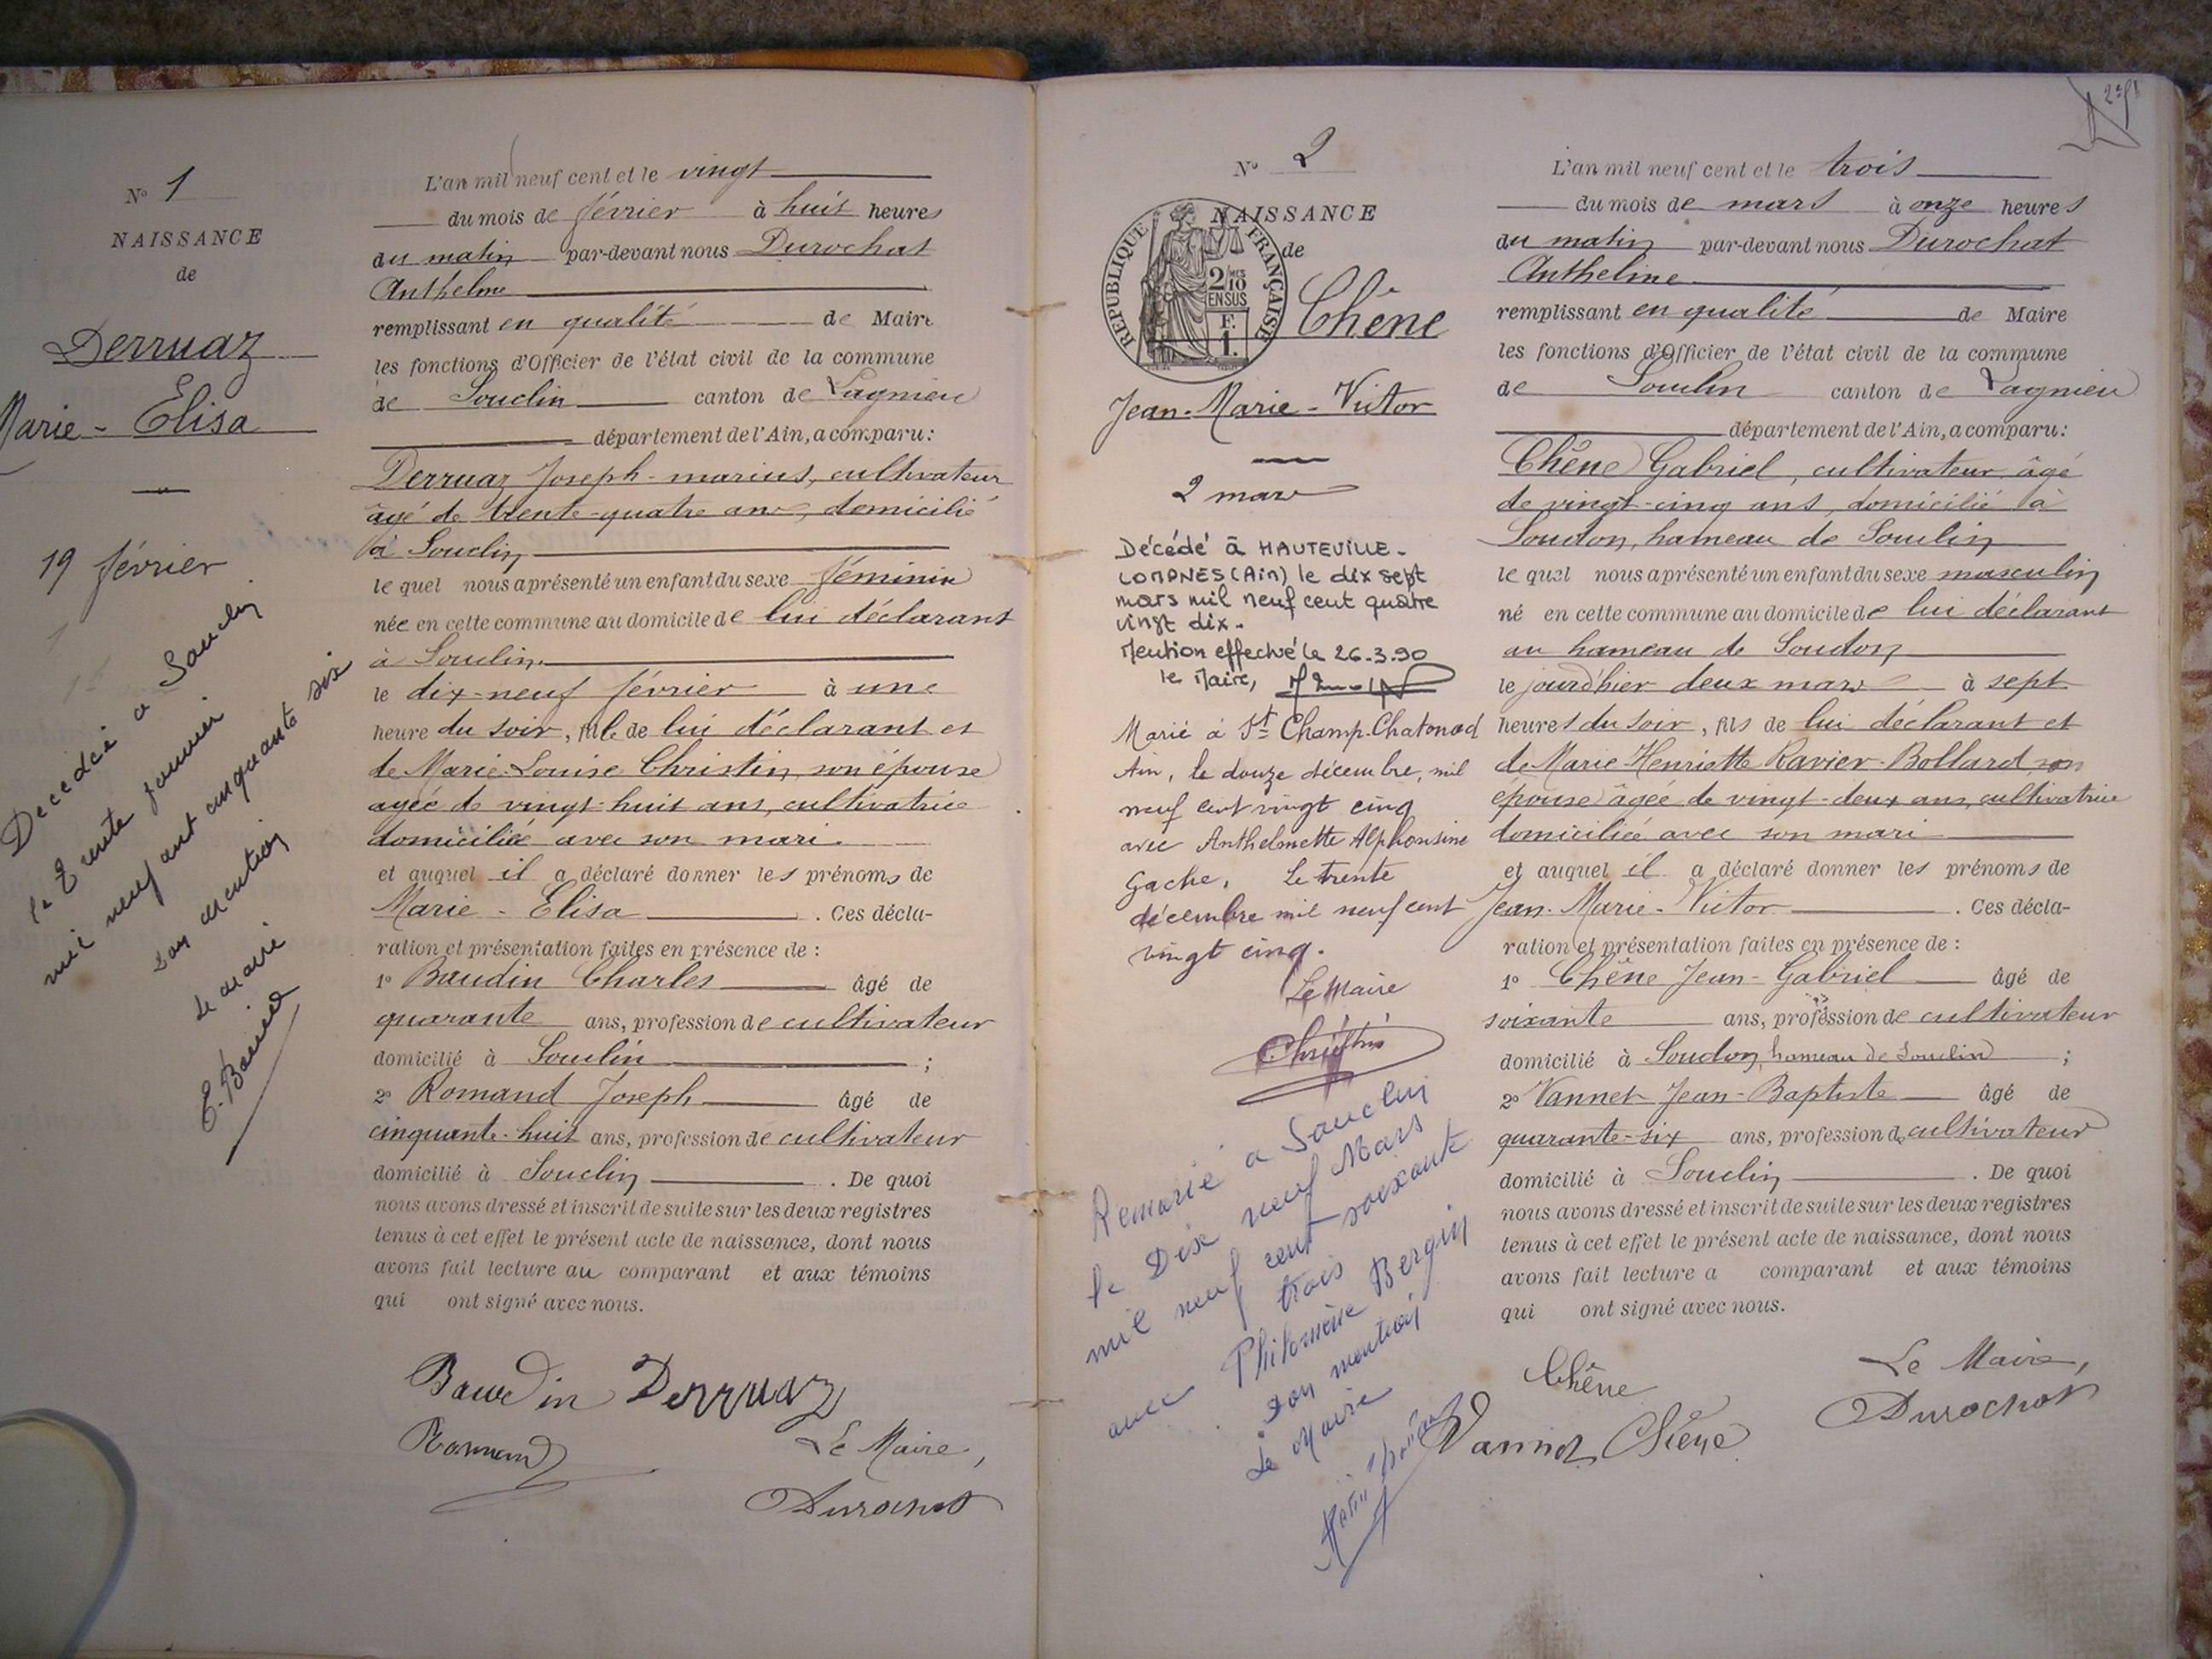 N° 1
NAISSANCE
de
Derruaz
Marie-Elisa
19 février
Décédée à Souclin
le trente janvier
mil neuf cent cinquante six
Don mention
Le Maire
L'an mil neuf cent et le vingt
du mois de février à huit heures
du matin par-devant nous Durochat
Anthelme
remplissant en qualité de Maire
les fonctions d'Officier de l'état civil de la commune
de Souclin canton de Lagnieu
département de l'Ain, a comparu:
Derruaz Joseph-marius, cultivateur
âgé de trente-quatre ans, domicilié
à Souclin
le quel nous a présenté un enfant du sexe féminin
née en cette commune au domicile de lui déclarant
à Souclin.
le dix-neuf février à une
heure du soir, fille de lui déclarant et
de Marie-Louise Christin, son épouse
agée de vingt-huit ans, cultivatrice
domiciliée avec son mari.
et auquel il a déclaré donner les prénoms de
Marie-Elisa. Ces décla-
ration et présentation faites en présence de :
1° Baudin Charles âgé de
quarante ans, profession de cultivateur
domicilié à Souclin ;
2° Romand Joseph âgé de
cinquante-huit ans, profession de cultivateur
domicilié à Souclin. De quoi
nous avons dressé et inscrit de suite sur les deux registres
tenus à cet effet le présent acte de naissance, dont nous
avons fait lecture au comparant et aux témoins
qui ont signé avec nous.
Baudin Derruaz
Romand Le Maire,
Durochat
N° 2
NAISSANCE
de
RÉPUBLIQUE FRANÇAISE
2/10 MES
EN SUS
F.
1.
Chêne
Jean-Marie-Victor
2 mars
Décédé à HAUTEVILLE-
LOMPNES (Ain) le dix sept
mars mil neuf cent quatre
vingt dix.
Mention effectué le 26.3.90
le Maire,
Marié à St Champ-Chatonod
Ain, le douze décembre, mil
neuf cent vingt cinq
avec Anthelmette Alphonsine
Gache. Le trente
décembre mil neuf cent
vingt cinq.
Le Maire
Christin
Remarié a Souclin
le Dix neuf Mars
mil neuf cent soixante
trois
avec Philomène Bergin
Don mention
Le Maire
L'an mil neuf cent et le trois
du mois de mars à onze heures
du matin par-devant nous Durochat
Anthelme
remplissant en qualité de Maire
les fonctions d'Officier de l'état civil de la commune
de Souclin canton de Lagnieu
département de l'Ain, a comparu:
Chêne Gabriel, cultivateur âgé
de vingt-cinq ans, domicilié à
Soudon, hameau de Souclin
le quel nous a présenté un enfant du sexe masculin
né en cette commune au domicile de lui déclarant
au hameau de Soudon
le jourd'hier deux mars à sept
heures du soir, fils de lui déclarant et
de Marie Henriette Ravier-Bollard, son
épouse âgée de vingt-deux ans, cultivatrice
domiciliée avec son mari
et auquel il a déclaré donner les prénoms de
Jean-Marie-Victor. Ces décla-
ration et présentation faites en présence de :
1° Chêne Jean-Gabriel âgé de
soixante ans, profession de cultivateur
domicilié à Soudon, hameau de Souclin ;
2° Vannet Jean-Baptiste âgé de
quarante-six ans, profession de cultivateur
domicilié à Souclin. De quoi
nous avons dressé et inscrit de suite sur les deux registres
tenus à cet effet le présent acte de naissance, dont nous
avons fait lecture a comparant et aux témoins
qui ont signé avec nous.
Chêne Le Maire,
Vannet Chêne Durochat